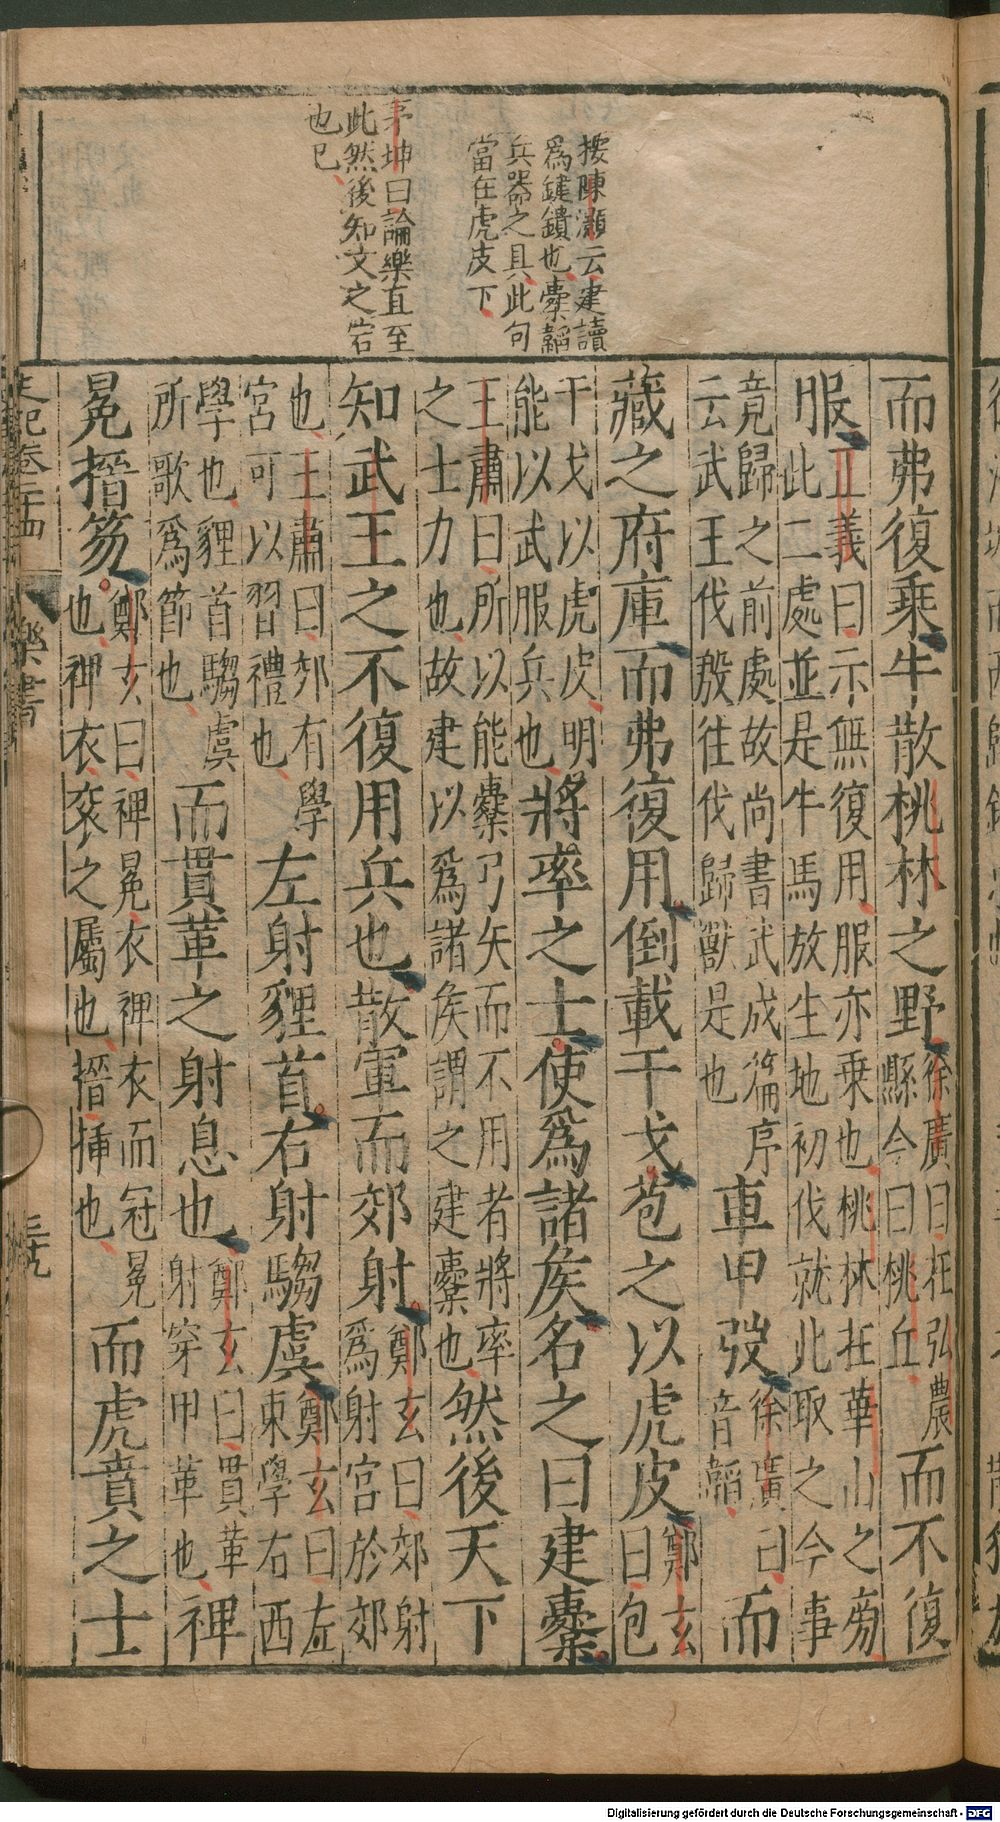 按陳灝云建讀
爲鍵鐀也櫜韜
兵器之具此句
當在虎皮下
茅坤曰論樂直至
此然後知文之宕
也已
而弗復乘牛散桃林之野徐廣曰在弘農縣今曰桃丘而不復
服正義曰示無復用服亦乘也桃林在華山之旁此二處並是牛馬放生地初伐就此取之今事
竟歸之前處故尚書武成篇序云武王伐殷往伐歸獸是也車甲弢徐廣曰音韜而
藏之府庫而弗復用倒載干戈苞之以虎皮鄭玄曰包
干戈以虎皮明能以武服兵也將率之士使爲諸矦名之曰建櫜
王肅曰所以能櫜弓矢而不用者將率之士力也故建以爲諸矦謂之建櫜也然後天下
知武王之不復用兵也散軍而郊射鄭玄曰郊射爲射宮於郊
也王肅曰郊有學宮可以習禮也左射貍首右射騶虞鄭玄曰左東學右西
學也貍首騶虞所歌爲節也而貫革之射息也鄭玄曰貫革射穿甲革也裨
冕搢笏鄭玄曰裨冕衣裨衣而冠冕也裨衣袞之屬也搢揷也而虎賁之士
史記卷二十四
樂書
三九
Digitalisierung gefördert durch die Deutsche Forschungsgemeinschaft - DFG